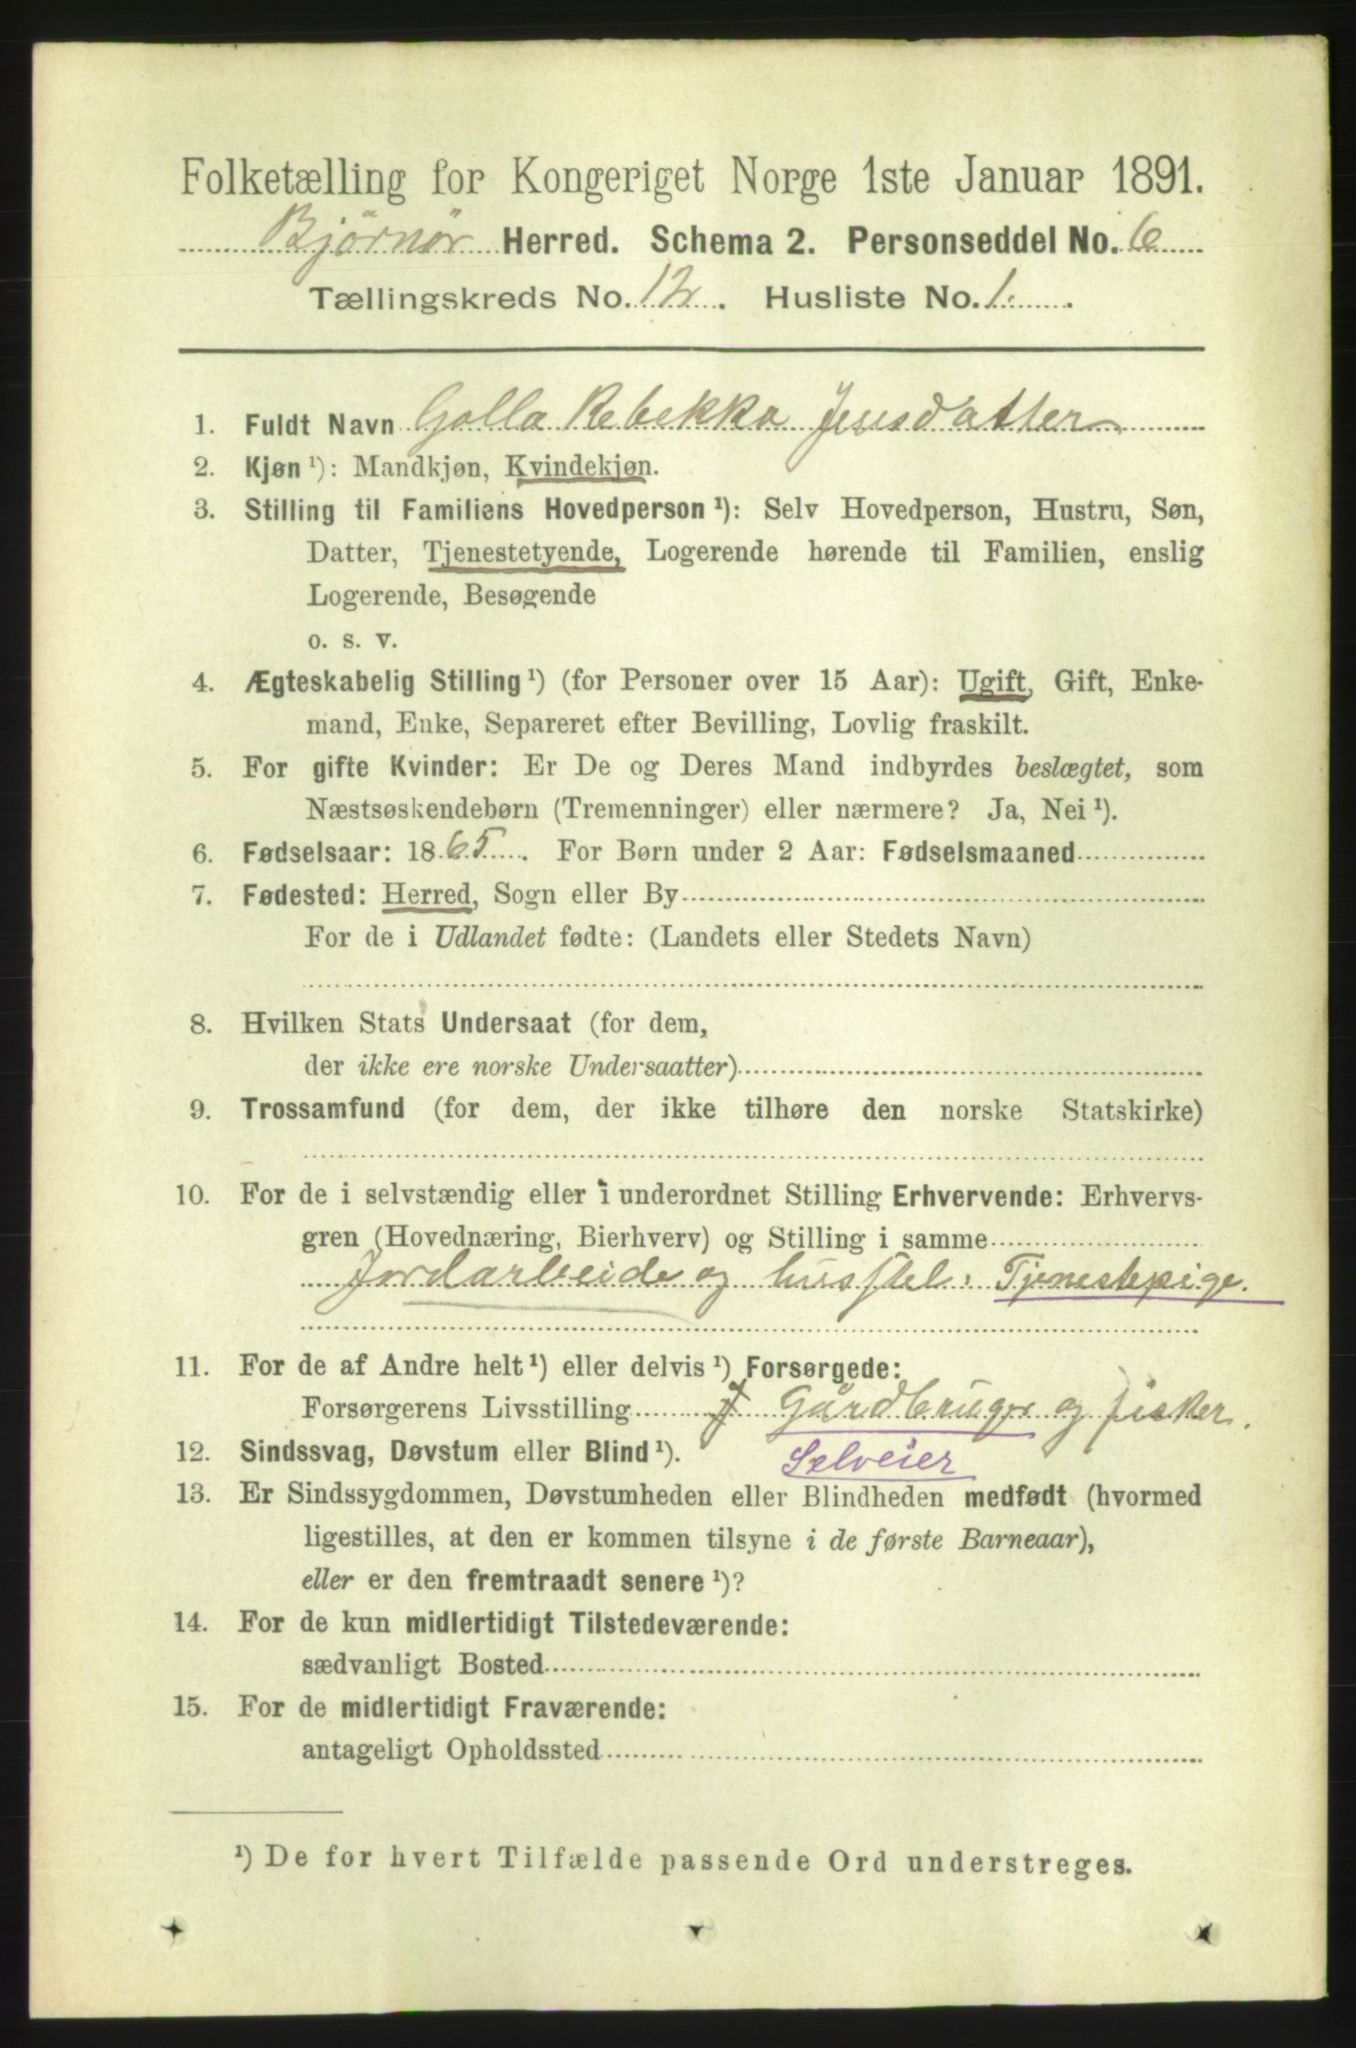 Folketælling for Kongeriget Norge 1ste Januar 1891.
Bjørnør Herred. Schema 2. Personseddel No. 6
Tællingskreds No. 12. Husliste No. 1.
1. Fuldt Navn Golla Rebekka Jensdatter
2. Kjøn ¹): Mandkjøn, Kvindekjøn.
3. Stilling til Familiens Hovedperson ¹): Selv Hovedperson, Hustru, Søn,
Datter, Tjenestetyende, Logerende hørende til Familien, enslig
Logerende, Besøgende
o. s. v.
4. Ægteskabelig Stilling ¹) (for Personer over 15 Aar): Ugift, Gift, Enke-
mand, Enke, Separeret efter Bevilling, Lovlig fraskilt.
5. For gifte Kvinder: Er De og Deres Mand indbyrdes beslægtet, som
Næstsøskendebørn (Tremenninger) eller nærmere? Ja, Nei ¹).
6. Fødselsaar: 1865. For Børn under 2 Aar: Fødselsmaaned
7. Fødested: Herred, Sogn eller By
For de i Udlandet fødte: (Landets eller Stedets Navn)
8. Hvilken Stats Undersaat (for dem,
der ikke ere norske Undersaatter)
9. Trossamfund (for dem, der ikke tilhøre den norske Statskirke)
10. For de i selvstændig eller i underordnet Stilling Erhvervende: Erhvervs-
gren (Hovednæring, Bierhverv) og Stilling i samme
Jordarbeide og husstel. Tjenestepige.
11. For de af Andre helt ¹) eller delvis ¹) Forsørgede:
Forsørgerens Livsstilling Gårdbruger og fisker.
12. Sindssvag, Døvstum eller Blind ¹). Selveier
13. Er Sindssygdommen, Døvstumheden eller Blindheden medfødt (hvormed
ligestilles, at den er kommen tilsyne i de første Barneaar),
eller er den fremtraadt senere ¹)?
14. For de kun midlertidigt Tilstedeværende:
sædvanligt Bosted
15. For de midlertidigt Fraværende:
antageligt Opholdssted
¹) De for hvert Tilfælde passende Ord understreges.